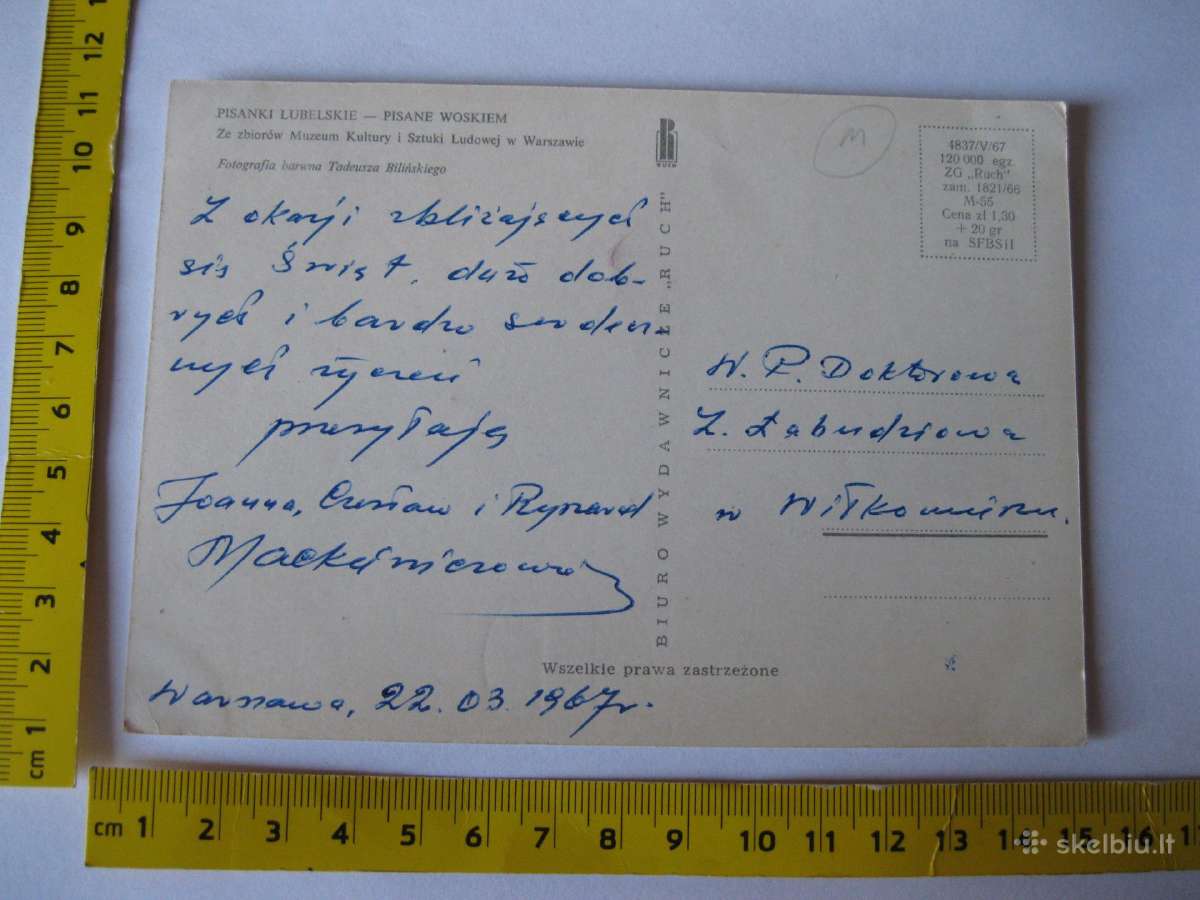 PISANKI LUBELSKIE — PISANE WOSKIEM
Ze zbiorów Muzeum Kultury i Sztuki Ludowej w Warszawie
Fotografia barwna Tadeusza Bilińskiego
Z okazji zbliżających
się Świąt, dużo dob-
rych i bardzo serdecz
nych życzeń
przesyłają
Joanna, Czesław i Ryszard
Warszawa, 22.03.1967r.
RUCH
BIURO WYDAWNICZE „RUCH"
Wszelkie prawa zastrzeżone
M
4837/V/67
120 000 egz.
ZG „Ruch"
zam. 1821/66
M-55
Cena zł 1,30
+ 20 gr
na SFBSiI
W. P. Doktorowa
Z. Żabudziowa
w Wiłkomierzu.
12
11
10
9
8
7
6
5
4
3
2
cm 1
cm 1 2 3 4 5 6 7 8 9 10 11 12 13 14 15 16
skelbiu.lt